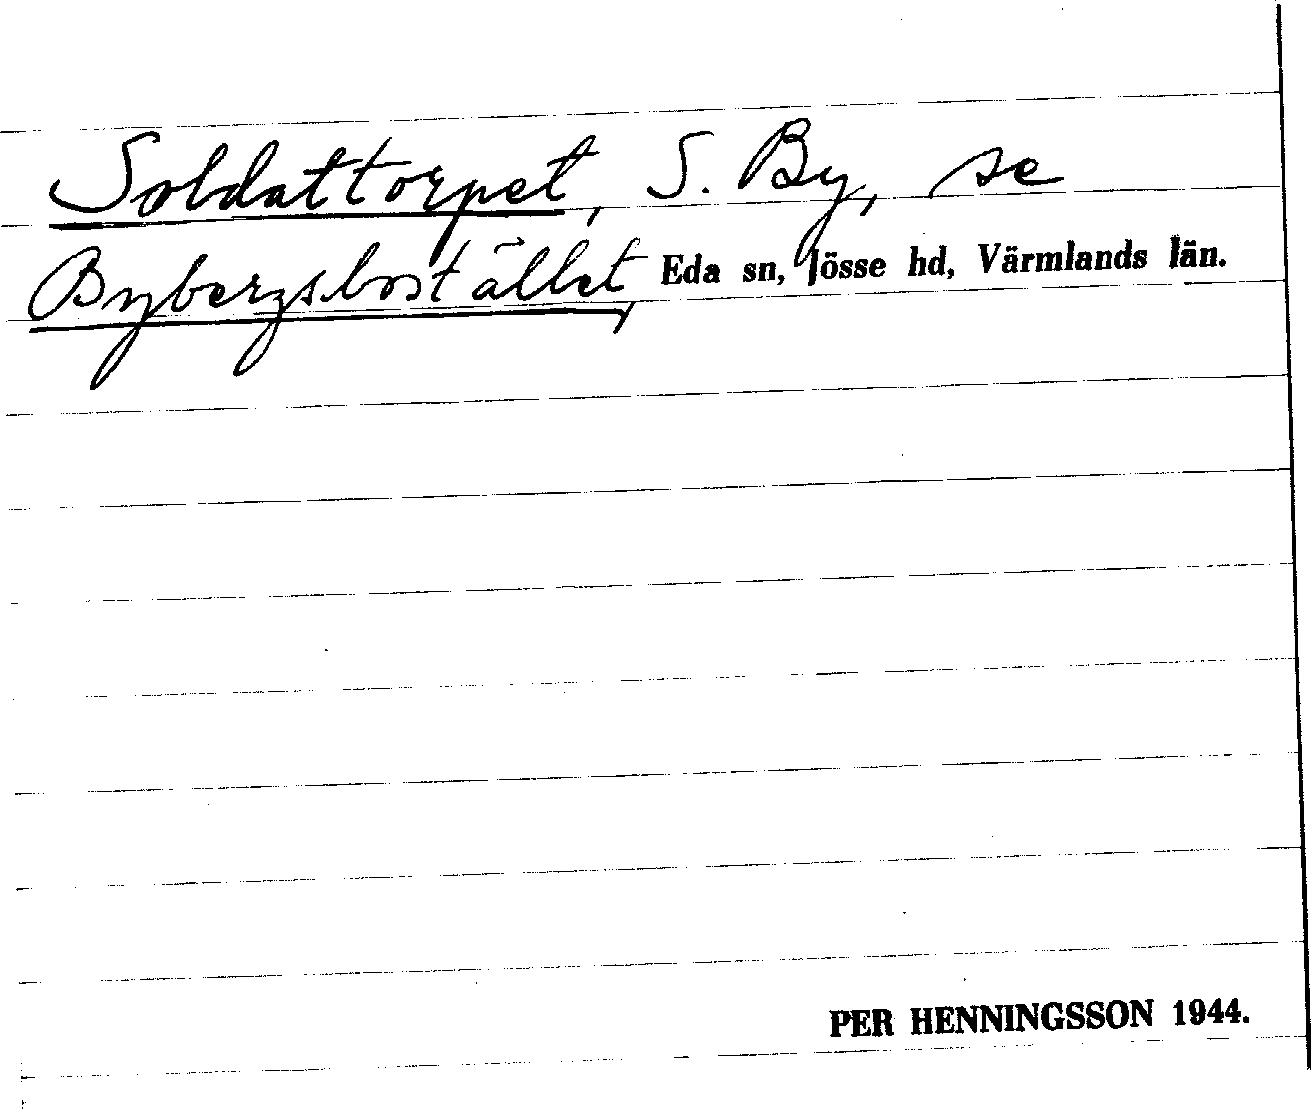 Soldattorpet, S. By, se
Bybergsbostället, Eda sn, Jösse hd, Värmlands län.
PER HENNINGSSON 1944.